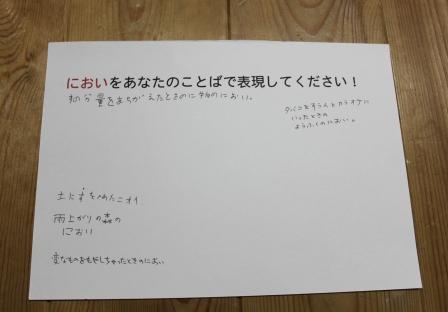 においをあなたのことばで表現してください！
分量をまちがえたときの
におい。
タバコをすう人とカラオケに
いったときの
ようふくのにおい。
土に
をぬたニオイ
雨上がりの森の
におい
変なものをもやしちゃったときのにおい